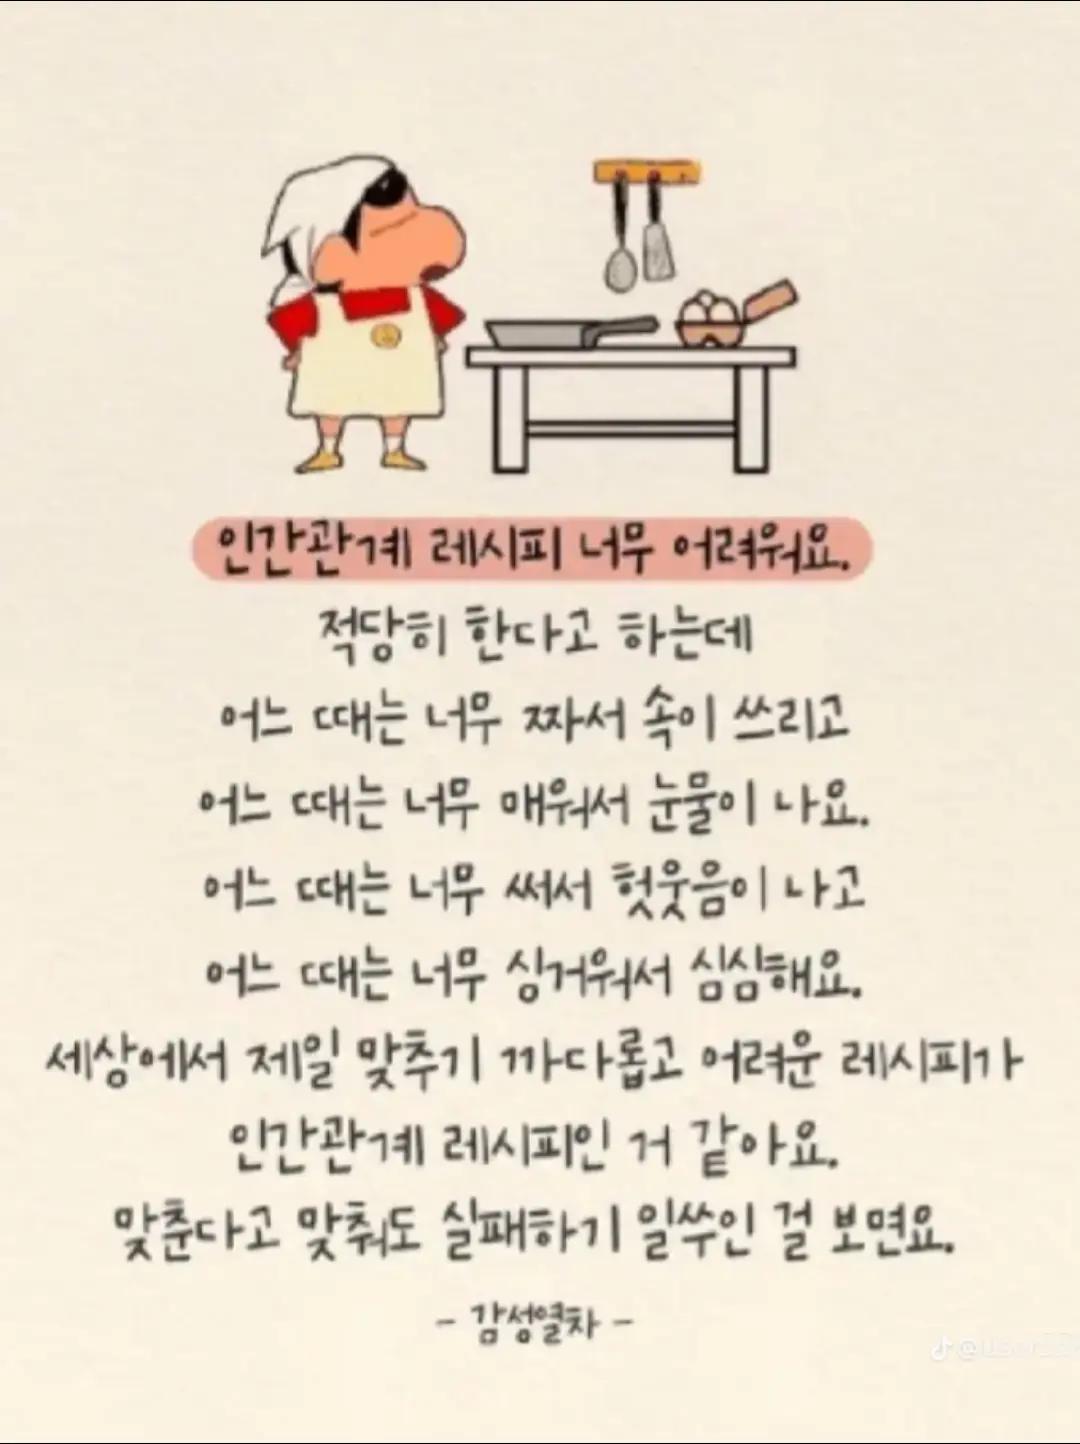 인간관계 레시피 너무 어려워요.
적당히 한다고 하는데
어느 때는 너무 짜서 속이 쓰리고
어느 때는 너무 매워서 눈물이 나요.
어느 때는 너무 써서 헛웃음이 나고
어느 때는 너무 싱거워서 심심해요.
세상에서 제일 맞추기 까다롭고 어려운 레시피가
인간관계 레시피인 거 같아요.
맞춘다고 맞춰도 실패하기 일쑤인 걸 보면요.
- 감성열차 -